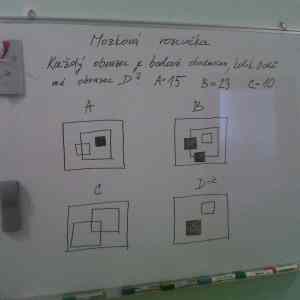 Mozková rozcvička
Každý obrazec je bodově ohodnocen, kolik bodů
má obrazec D? A=15 B=23 C=10
A
B
C
D=?